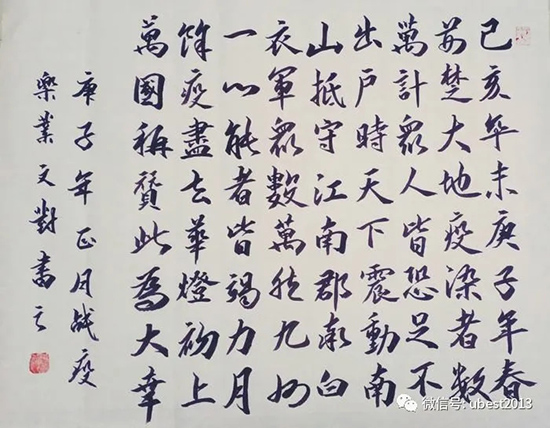 己亥年末庚子年春
荆楚大地疫染者数
萬計眾人皆恐足不
出户時天下震動南
山抵守江南郡率白
衣軍眾數萬九州
一心能者皆竭力月
餘疫盡去華燈初上
萬國稱贊此為大幸
庚子年正月战疫
樂業文對書之
微信号: ubest2013